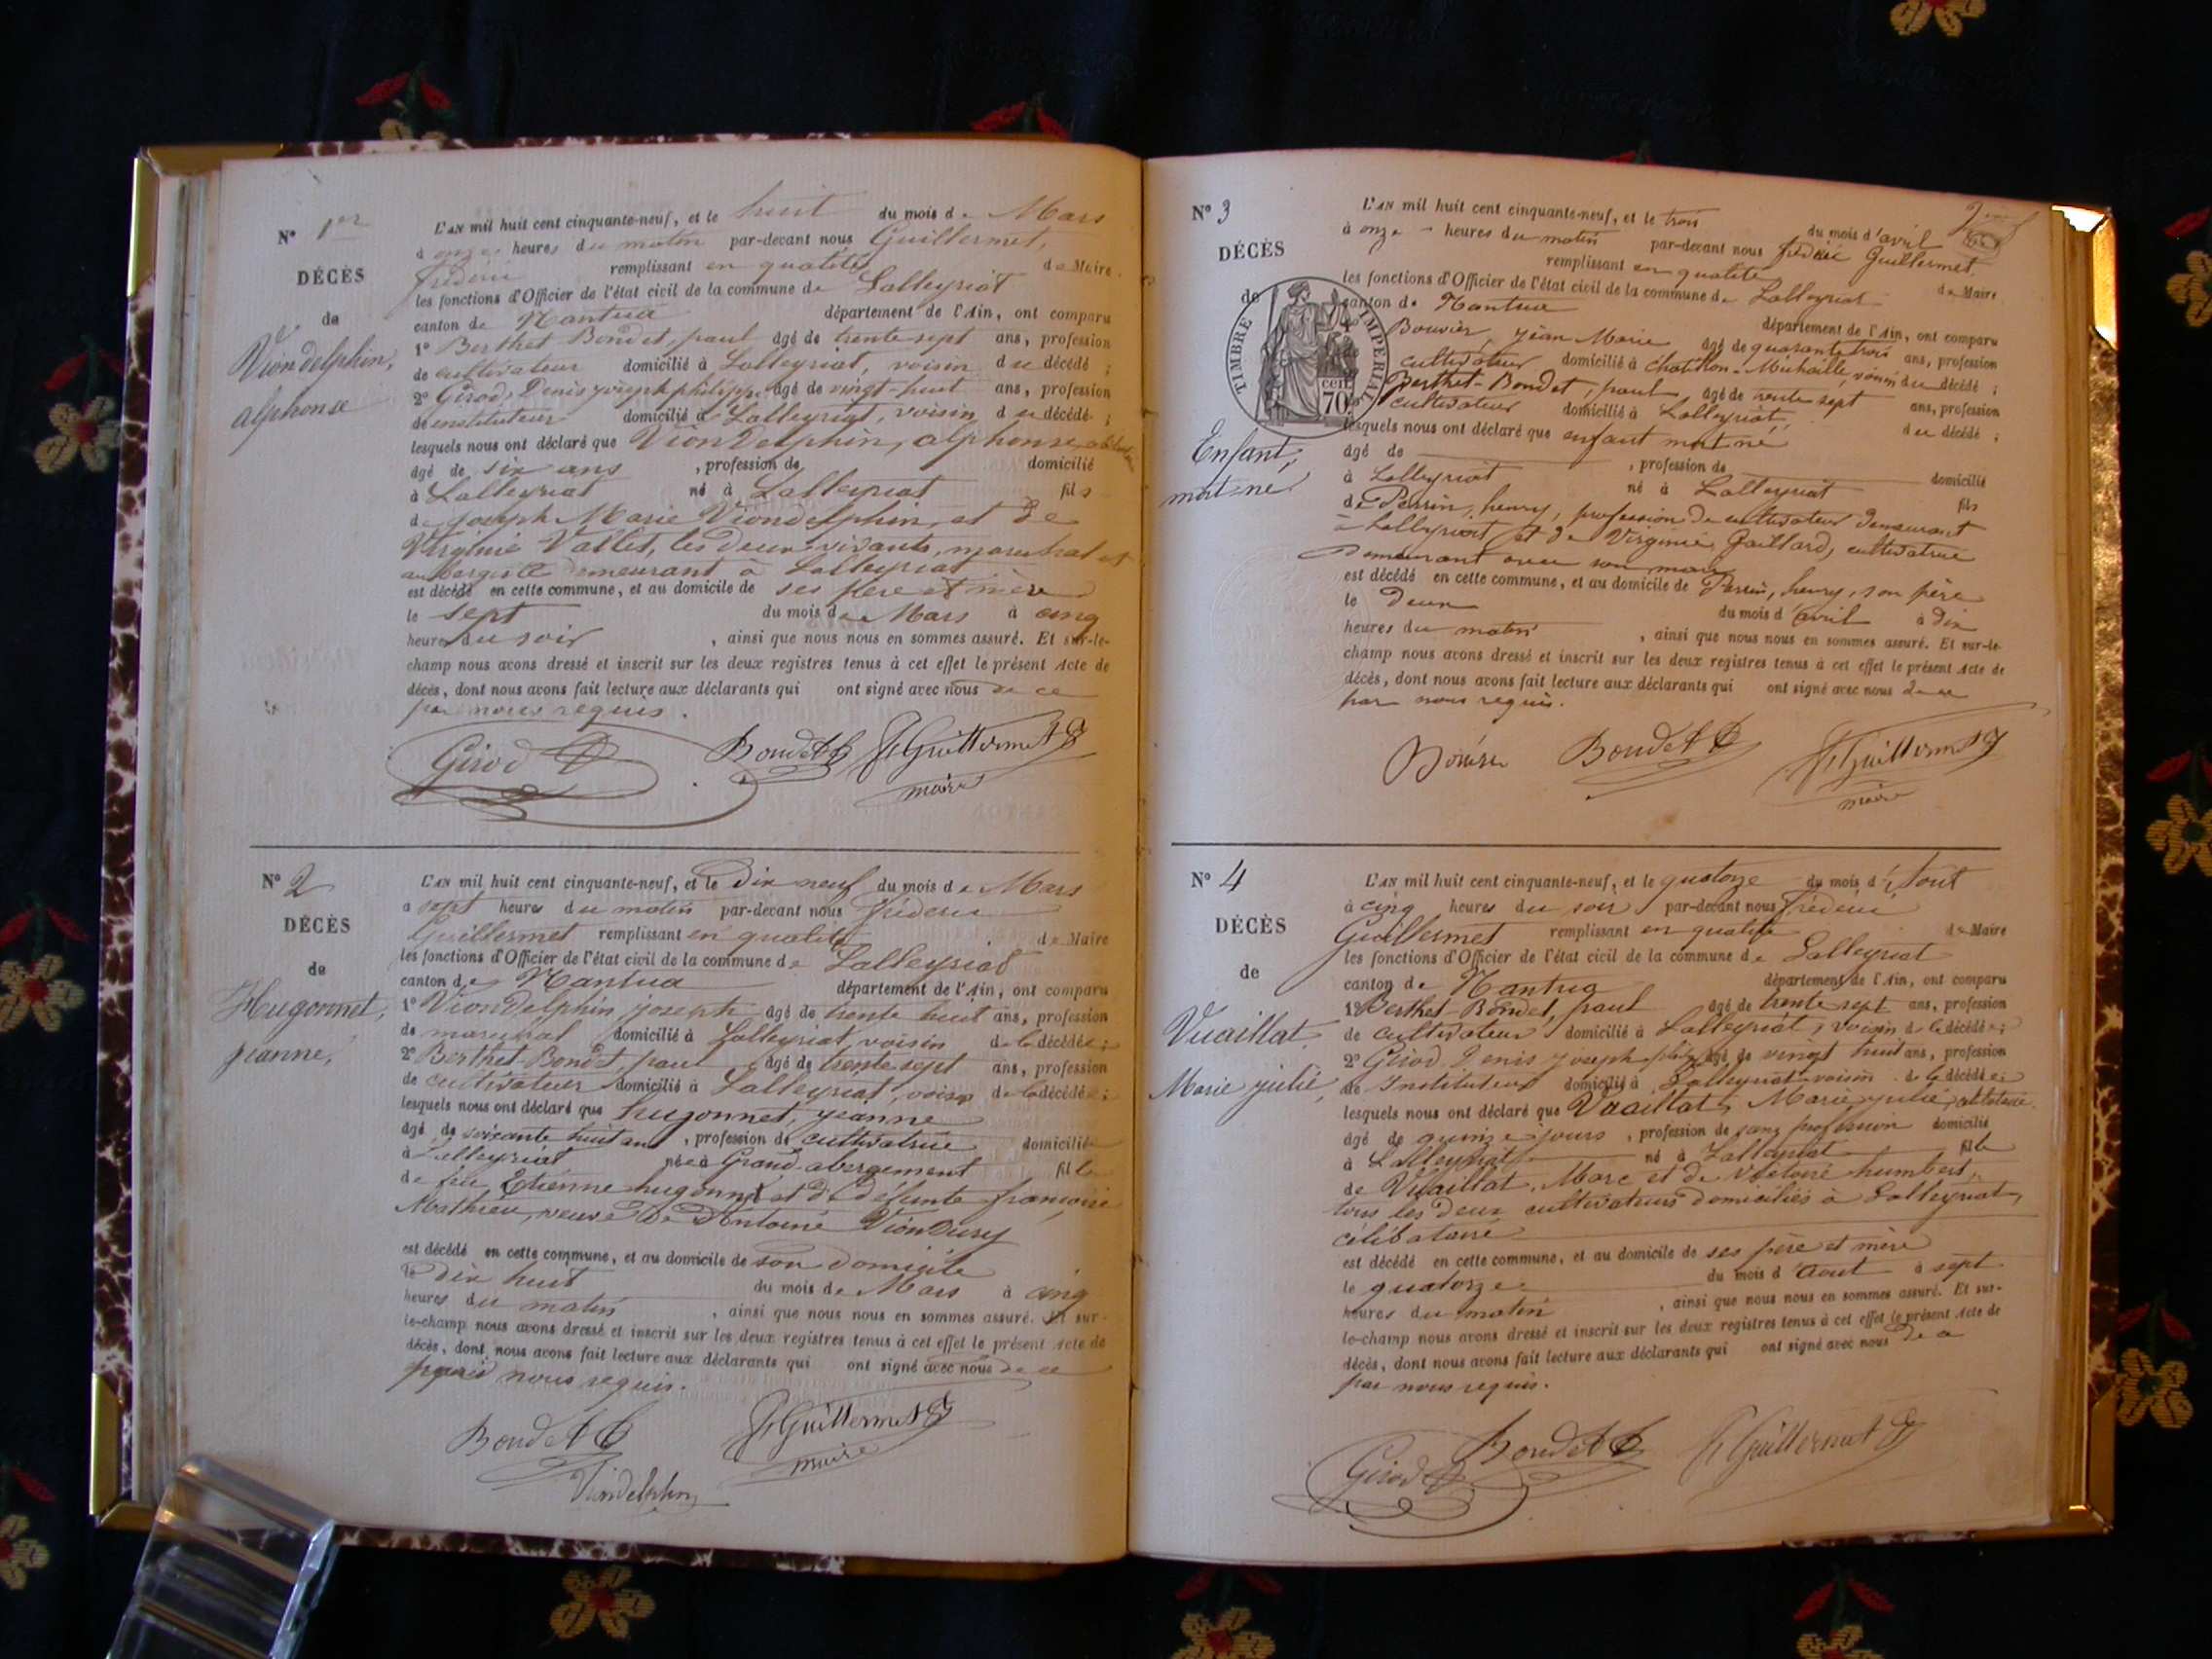 N° 1er
DÉCÈS
de
Viondelphin,
alphonse
L'AN mil huit cent cinquante-neuf, et le huit du mois de Mars
à onze heures du matin par-devant nous Guillermet,
frédéric remplissant en qualité de Maire
les fonctions d'Officier de l'état civil de la commune de Lalleyriat
canton de Nantua département de l'Ain, ont comparu
1° Berthet Bondet, paul âgé de trente sept ans, profession
de cultivateur domicilié à Lalleyriat, voisin du décédé ;
2° Girod, Denis joseph philippe âgé de vingt-huit ans, profession
de instituteur domicilié à Lalleyriat, voisin du décédé ;
lesquels nous ont déclaré que Viondelphin, alphonse,
âgé de six ans , profession de domicilié
à Lalleyriat né à Lalleyriat fils
de joseph Marie Viondelphin, et de
Virginie Vallet, les deux vivants, marechal et
aubergiste demeurant à Lalleyriat
est décédé en cette commune, et au domicile de ses père et mère
le sept du mois de Mars à cinq
heures du soir , ainsi que nous nous en sommes assuré. Et sur-le-
champ nous avons dressé et inscrit sur les deux registres tenus à cet effet le présent Acte de
décès, dont nous avons fait lecture aux déclarants qui ont signé avec nous de ce
par nous requis.
Girod Bondet P Guillermet
maire
N° 2
DÉCÈS
de
Hugonnet,
jeanne,
L'AN mil huit cent cinquante-neuf, et le dix neuf du mois de Mars
à sept heures du matin par-devant nous frédéric
Guillermet remplissant en qualité de Maire
les fonctions d'Officier de l'état civil de la commune de Lalleyriat
canton de Nantua département de l'Ain, ont comparu
1° Viondelphin joseph âgé de trente huit ans, profession
de marechal domicilié à Lalleyriat, voisin de la décédée ;
2° Berthet-Bondet, paul âgé de trente sept ans, profession
de cultivateur domicilié à Lalleyriat, voisin de la décédée ;
lesquels nous ont déclaré que hugonnet, jeanne
âgé de soixante huit ans , profession de cultivatrice domiciliée
à Lalleyriat née à Grand-abergement fille
de feu Etienne hugonnet et de défunte françoise
Mathieu, veuve de Antoine Viondury
est décédé en cette commune, et au domicile de son domicile
le dix huit du mois de Mars à cinq
heures du matin , ainsi que nous nous en sommes assuré. Et sur-
le-champ nous avons dressé et inscrit sur les deux registres tenus à cet effet le présent Acte de
décès, dont nous avons fait lecture aux déclarants qui ont signé avec nous de ce
par nous requis.
Bondet P Guillermet
maire
Viondelphin
N° 3
DÉCÈS
de
Enfant,
mort-né
TIMBRE IMPERIAL
70 cent
L'AN mil huit cent cinquante-neuf, et le trois du mois d'avril
à onze heures du matin par-devant nous frédéric Guillermet,
remplissant en qualité de Maire
les fonctions d'Officier de l'état civil de la commune de Lalleyriat
canton de Nantua département de l'Ain, ont comparu
Bouvier, jean Marie âgé de quarante trois ans, profession
cultivateur domicilié à Chatillon-Michaille, voisin du décédé ;
Berthet-Bondet, paul âgé de trente sept ans, profession
cultivateur domicilié à Lalleyriat, du décédé ;
lesquels nous ont déclaré que enfant mort né
âgé de , profession de domicilié
à Lalleyriat né à Lalleyriat fils
de Perrin, henry, profession de cultivateur demeurant
à Lalleyriat, et de Virginie Gaillard, cultivatrice
demeurant avec son mari
est décédé en cette commune, et au domicile de Perrin, henry, son père
le deux du mois d'avril à dix
heures du matin , ainsi que nous nous en sommes assuré. Et sur-le-
champ nous avons dressé et inscrit sur les deux registres tenus à cet effet le présent Acte de
décès, dont nous avons fait lecture aux déclarants qui ont signé avec nous de ce
par nous requis.
Bondet P Guillermet
maire
N° 4
DÉCÈS
de
Vuaillat
Marie julie,
L'AN mil huit cent cinquante-neuf, et le quatorze du mois d'Aout
à cinq heures du soir par-devant nous frédéric
Guillermet remplissant en qualité de Maire
les fonctions d'Officier de l'état civil de la commune de Lalleyriat
canton de Nantua département de l'Ain, ont comparu
1° Berthet-Bondet, paul âgé de trente sept ans, profession
de cultivateur domicilié à Lalleyriat, voisin de la décédée ;
2° Girod Denis joseph philippe âgé de vingt huit ans, profession
de Instituteur domicilié à Lalleyriat voisin de la décédée
lesquels nous ont déclaré que Vuaillat, Marie julie, célibataire
âgé de quinze jours , profession de sans profession domicilié
à Lalleyriat né à Lalleyriat fille
de Vuaillat, Marc et de Victoire humbert,
tous les deux cultivateurs domiciliés à Lalleyriat,
célibataire
est décédé en cette commune, et au domicile de ses père et mère
le quatorze du mois d'Aout à sept
heures du matin , ainsi que nous nous en sommes assuré. Et sur-
le-champ nous avons dressé et inscrit sur les deux registres tenus à cet effet le présent Acte de
décès, dont nous avons fait lecture aux déclarants qui ont signé avec nous de ce
par nous requis.
Girod Bondet P Guillermet